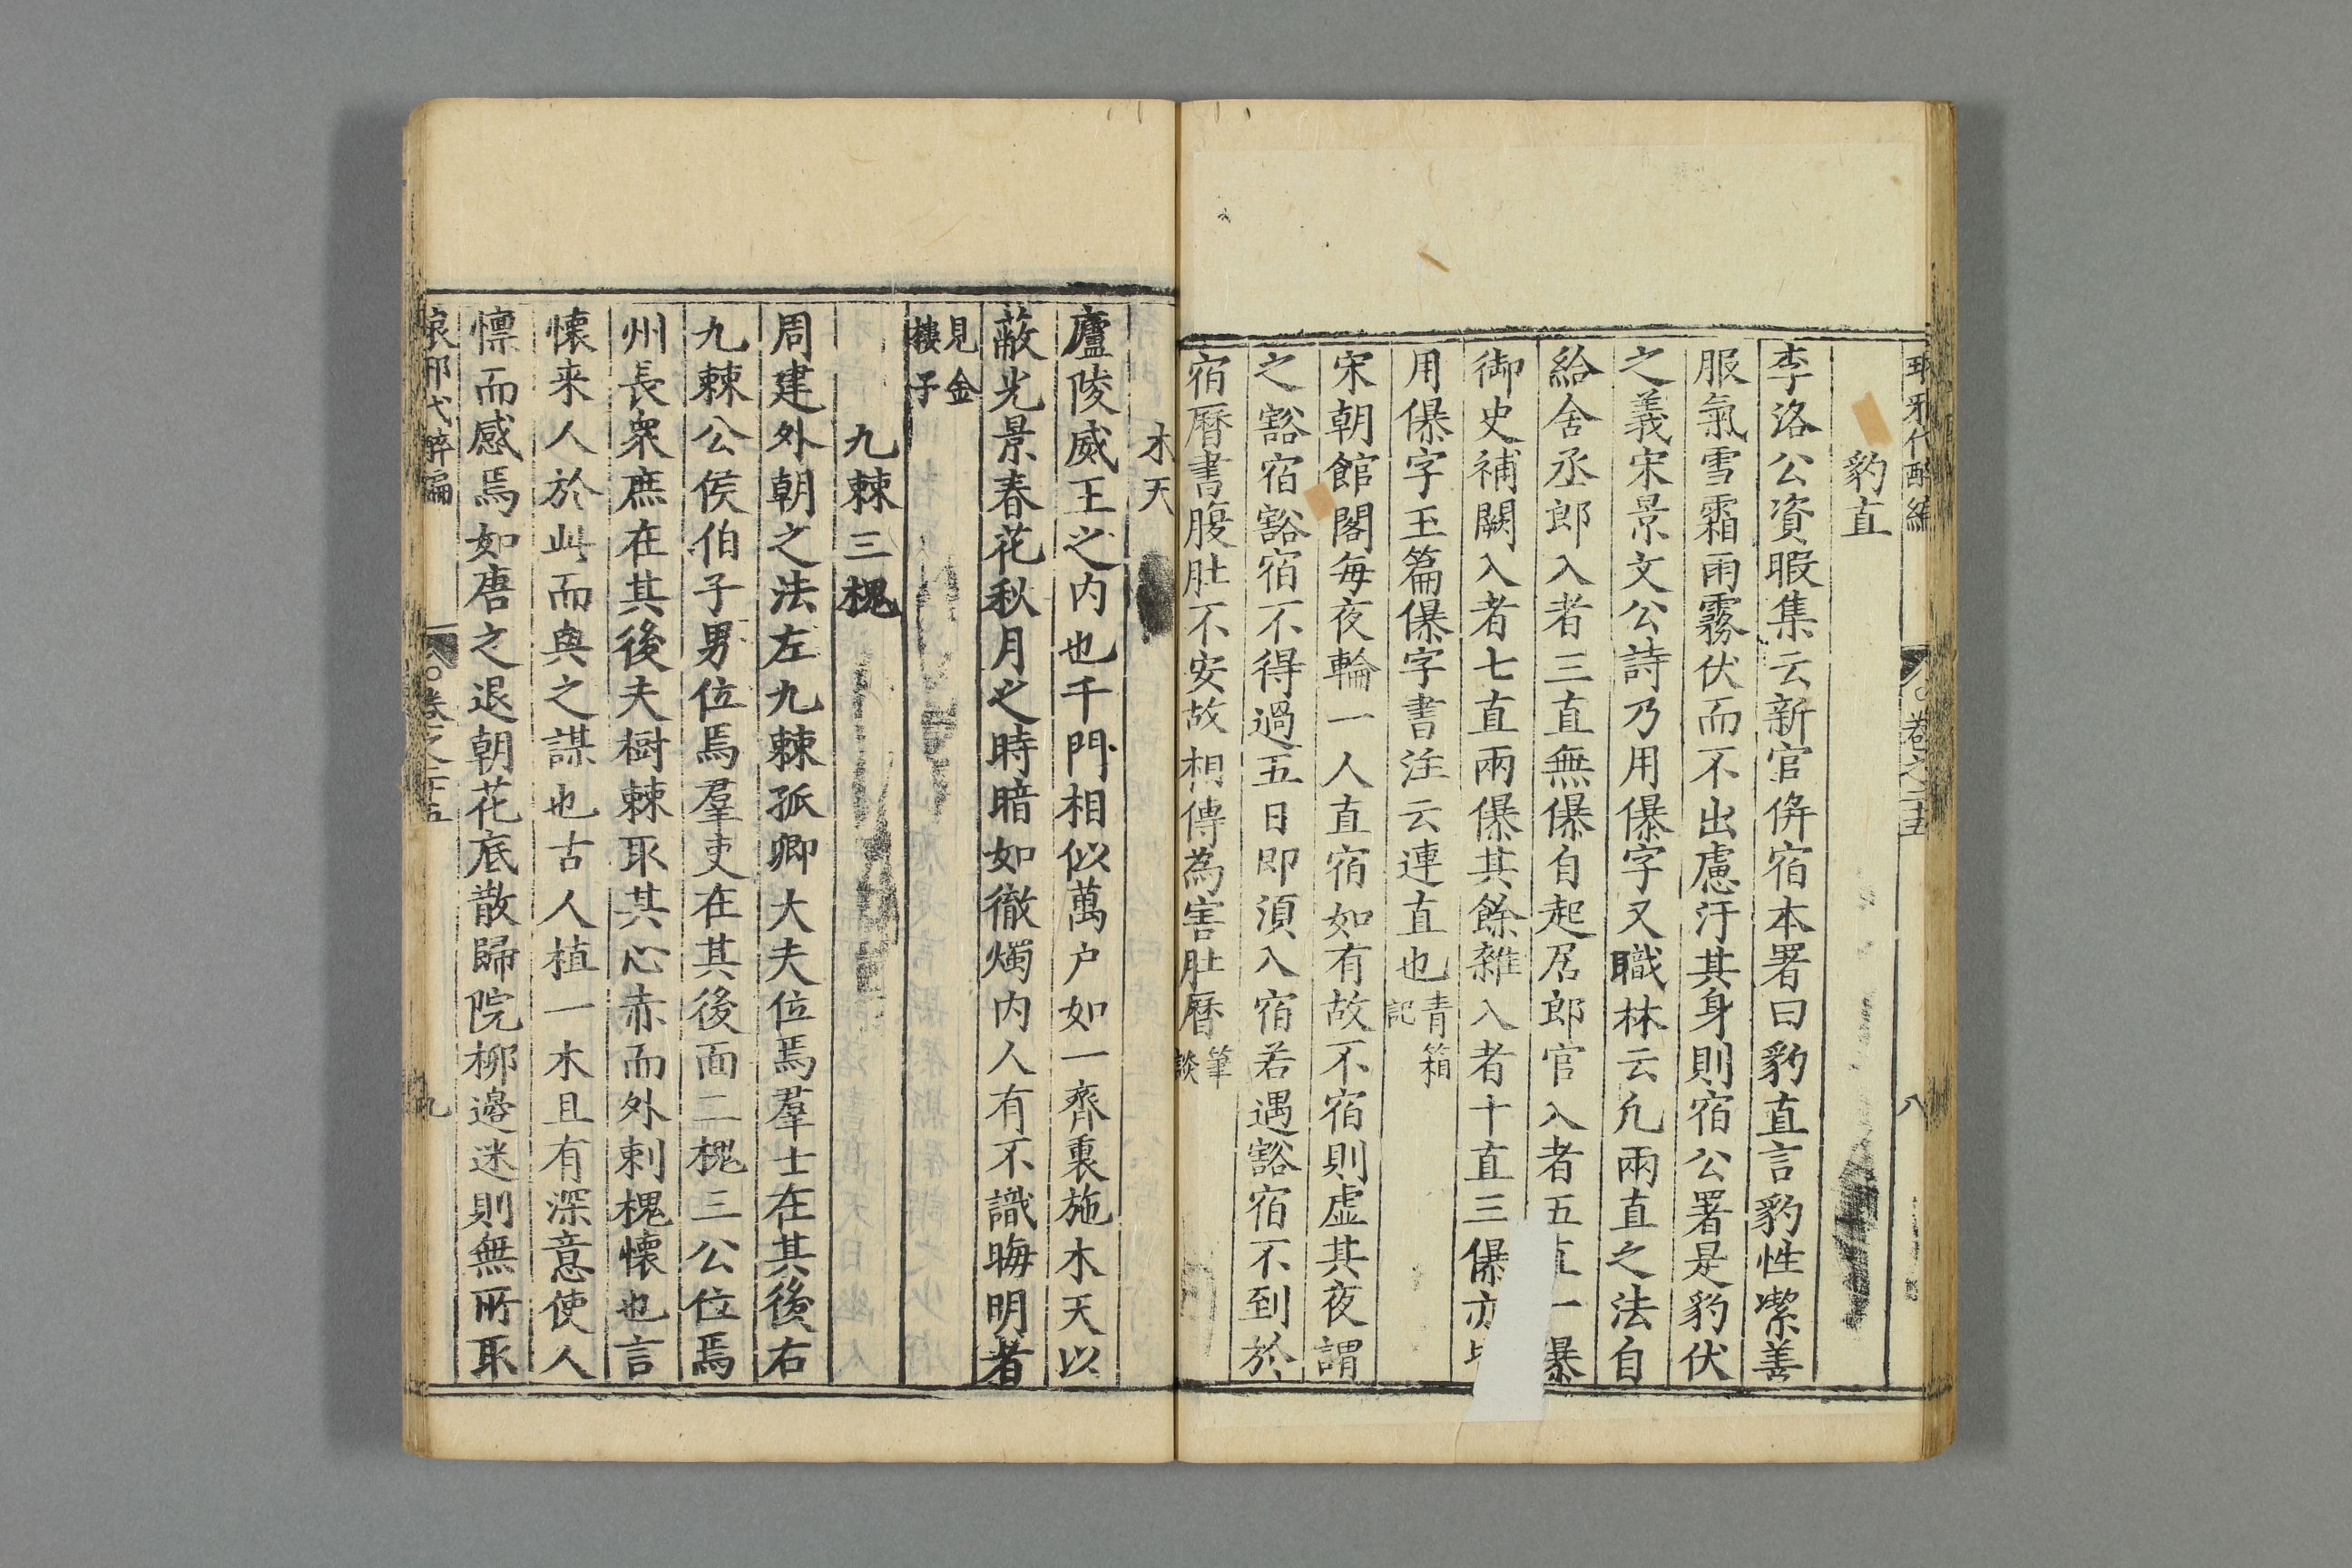 琅邪代醉編 卷之二十五 八
豹直
李洛公資暇集云新官併宿本署曰豹直言豹性潔善
服氣雪霜雨霧伏而不出慮汙其身則宿公署是豹伏
之義宋景文公詩乃用儤字又職林云凢兩直之法自
給舍丞郎入者三直無儤自起居郎官入者五直一儤
御史補闕入者七直兩儤其餘雜入者十直三儤亦
用儤字玉篇儤字書注云連直也青箱記
宋朝館閣每夜輪一人直宿如有故不宿則虛其夜謂
之豁宿豁宿不得過五日即須入宿若遇豁宿不到於
宿曆書腹肚不安故相傳為害肚曆筆談
木天
廬陵威王之内也千門相似萬户如一齊裏施木天以
蔽光景春花秋月之時暗如徹燭内人有不識晦明者
見金樓子
九棘三槐
周建外朝之法左九棘孤卿大夫位焉羣士在其後右
九棘公侯伯子男位焉羣吏在其後面二槐三公位焉
州長衆庶在其後夫樹棘取其心赤而外刺槐懷也言
懷来人於此而與之謀也古人植一木且有深意使人
懍而感焉如唐之退朝花底散歸院柳邉迷則無所取
琅邪代醉編 卷之二十五 九